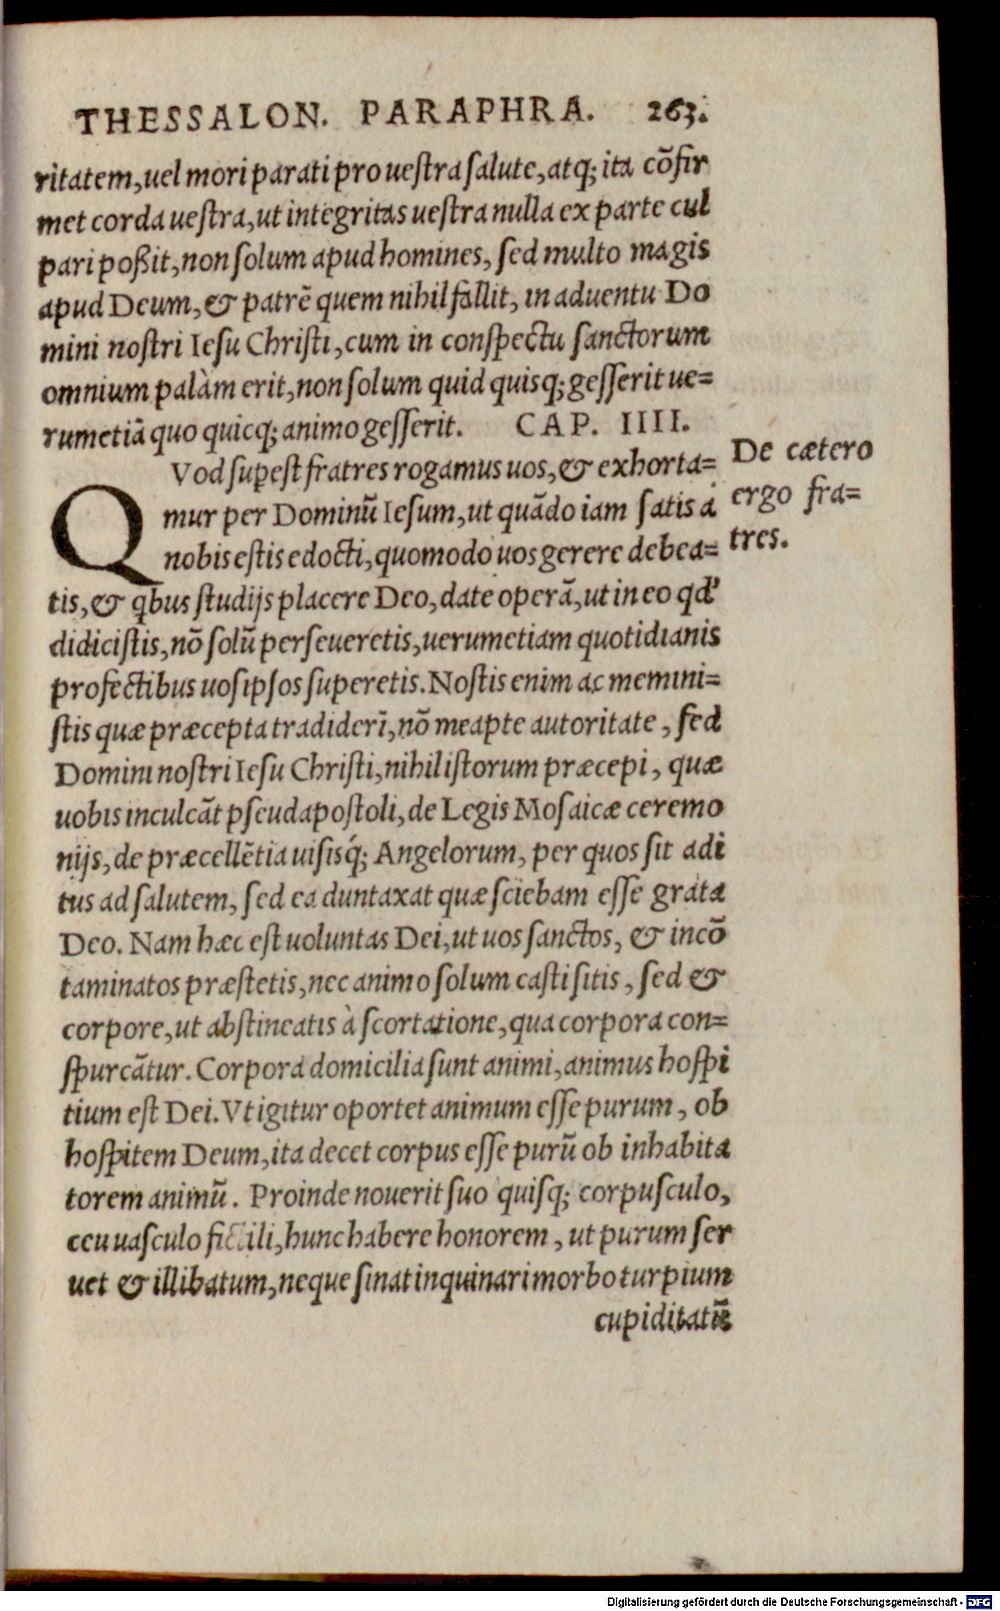 THESSALON. PARAPHRA. 263.
ritatem, uel mori parati pro uestra salute, atq; ita cõfir
met corda uestra, ut integritas uestra nulla ex parte cul
pari poßit, non solum apud homines, sed multo magis
apud Deum, & patrẽ quem nihil fallit, in aduentu Do
mini nostri Iesu Christi, cum in conspectu sanctorum
omnium palàm erit, non solum quid quisq; gesserit ue=
rumetiã quo quicq; animo gesserit. CAP. IIII.
QVod supest fratres rogamus uos, & exhorta=
mur per Dominũ Iesum, ut quãdo iam satis à
nobis estis edocti, quomodo uos gerere debea=
tis, & qbus studijs placere Deo, date operã, ut in eo qd'
didicistis, nõ solũ perseueretis, uerumetiam quotidianis
profectibus uosipsos superetis. Nostis enim ac memini=
stis quæ præcepta tradiderĩ, nõ meapte autoritate, sed
Domini nostri Iesu Christi, nihil istorum præcepi, quæ
uobis inculcãt pseudapostoli, de Legis Mosaicæ ceremo
nijs, de præcellẽtia uisisq́; Angelorum, per quos sit adi
tus ad salutem, sed ea duntaxat quæ sciebam esse grata
Deo. Nam hæc est uoluntas Dei, ut uos sanctos, & incõ
taminatos præstetis, nec animo solum casti sitis, sed &
corpore, ut abstineatis à scortatione, qua corpora con=
spurcãtur. Corpora domicilia sunt animi, animus hospi
tium est Dei. Vt igitur oportet animum esse purum, ob
hospitem Deum, ita decet corpus esse purũ ob inhabita
torem animũ. Proinde nouerit suo quisq; corpusculo,
ceu uasculo fictili, hunc habere honorem, ut purum ser
uet & illibatum, neque sinat inquinari morbo turpium
cupiditatũ
De cætero
ergo fra=
tres.
Digitalisierung gefördert durch die Deutsche Forschungsgemeinschaft - DFG